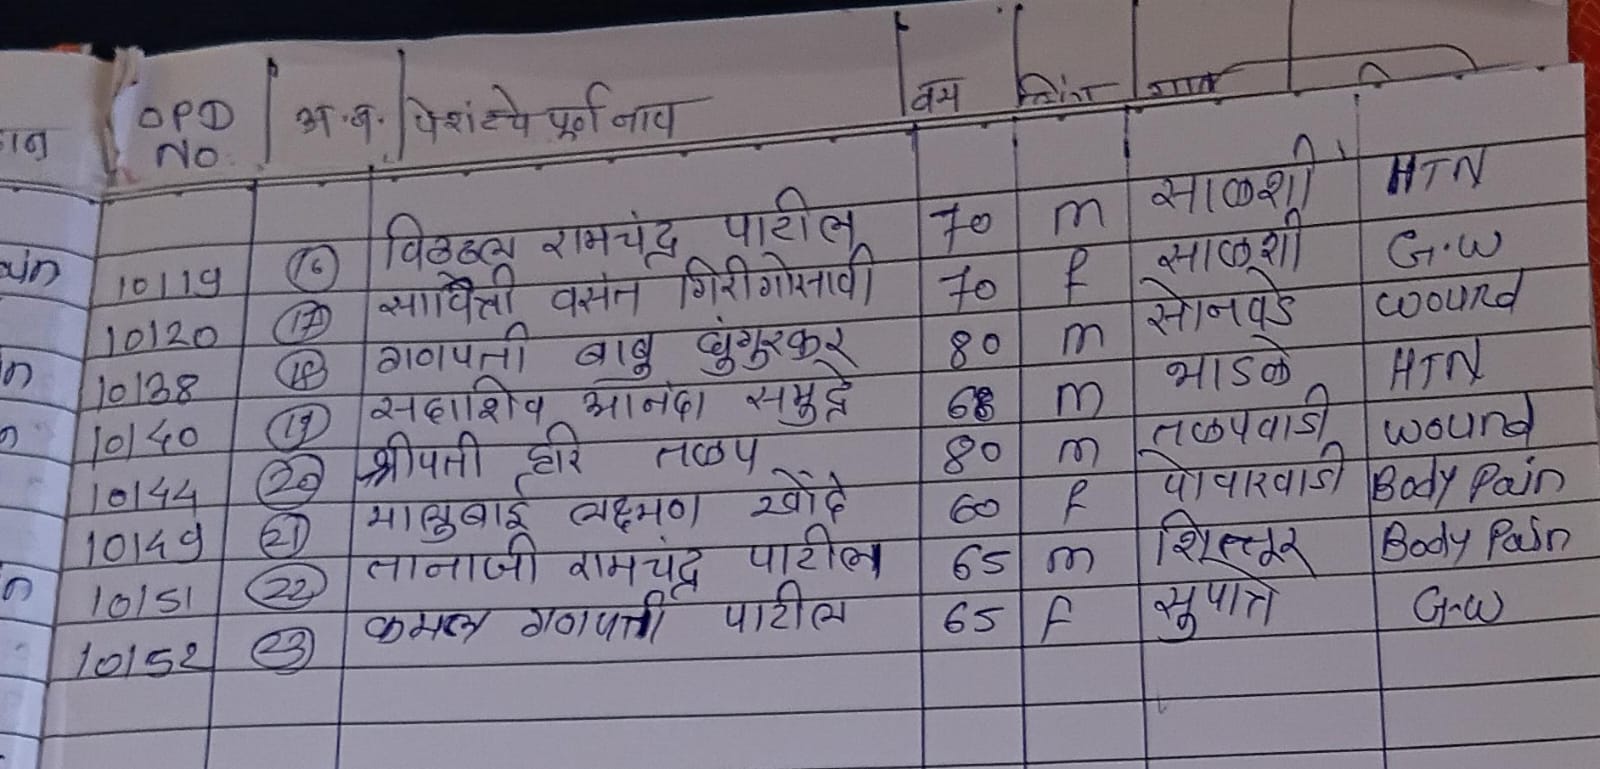 OPD No. अ.ब. पेशंटचे पूर्ण नाव वय लिंग गाव
10119 16 विठ्ठल रामचंद्र पाटील 70 m साळशी HTN
10120 17 सावित्री वसंत गिरीगोसावी 70 F साळशी G.W
10138 18 गणपती बाबु घुंगुरकर 80 m सोनवडे wound
10140 19 सदाशिव आनंदा समुद्रे 68 m भाडळे HTN
10144 20 श्रीपती हरि तळप 80 m तळपवाडी wound
10149 21 मालुबाई लक्ष्मण खोंदे 60 F पोवारवाडी Body Pain
10151 22 तानाजी रामचंद्र पाटील 65 m शित्तूर Body Pain
10152 23 कमल गणपती पाटील 65 F सुपात्रे G.W